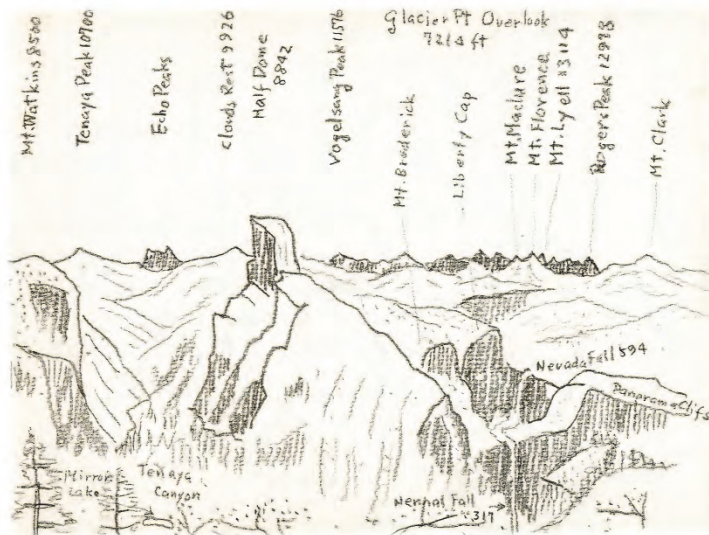 Glacier Pt Overlook
7214 ft
Mt. Watkins 8500
Tenaya Peak 10700
Echo Peaks
Clouds Rest 9926
Half Dome
8842
Vogelsang Peak 11576
Mt. Broderick
Liberty Cap
Mt. Maclure
Mt. Florence
Mt. Lyell 13114
Rogers Peak 12978
Mt. Clark
Nevada Fall 594
Panorama Cliffs
Mirror
Lake
Tenaya
Canyon
Nernal Fall
317